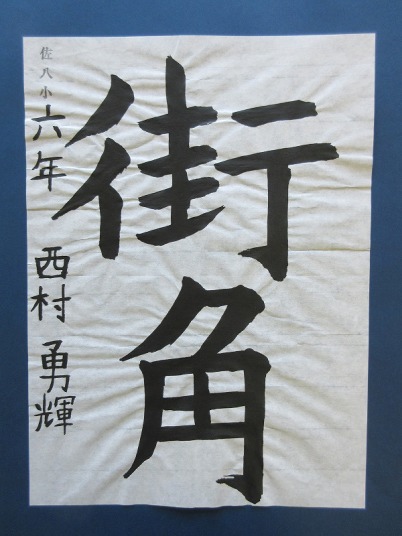 街角
佐八小
六年 西村 勇輝